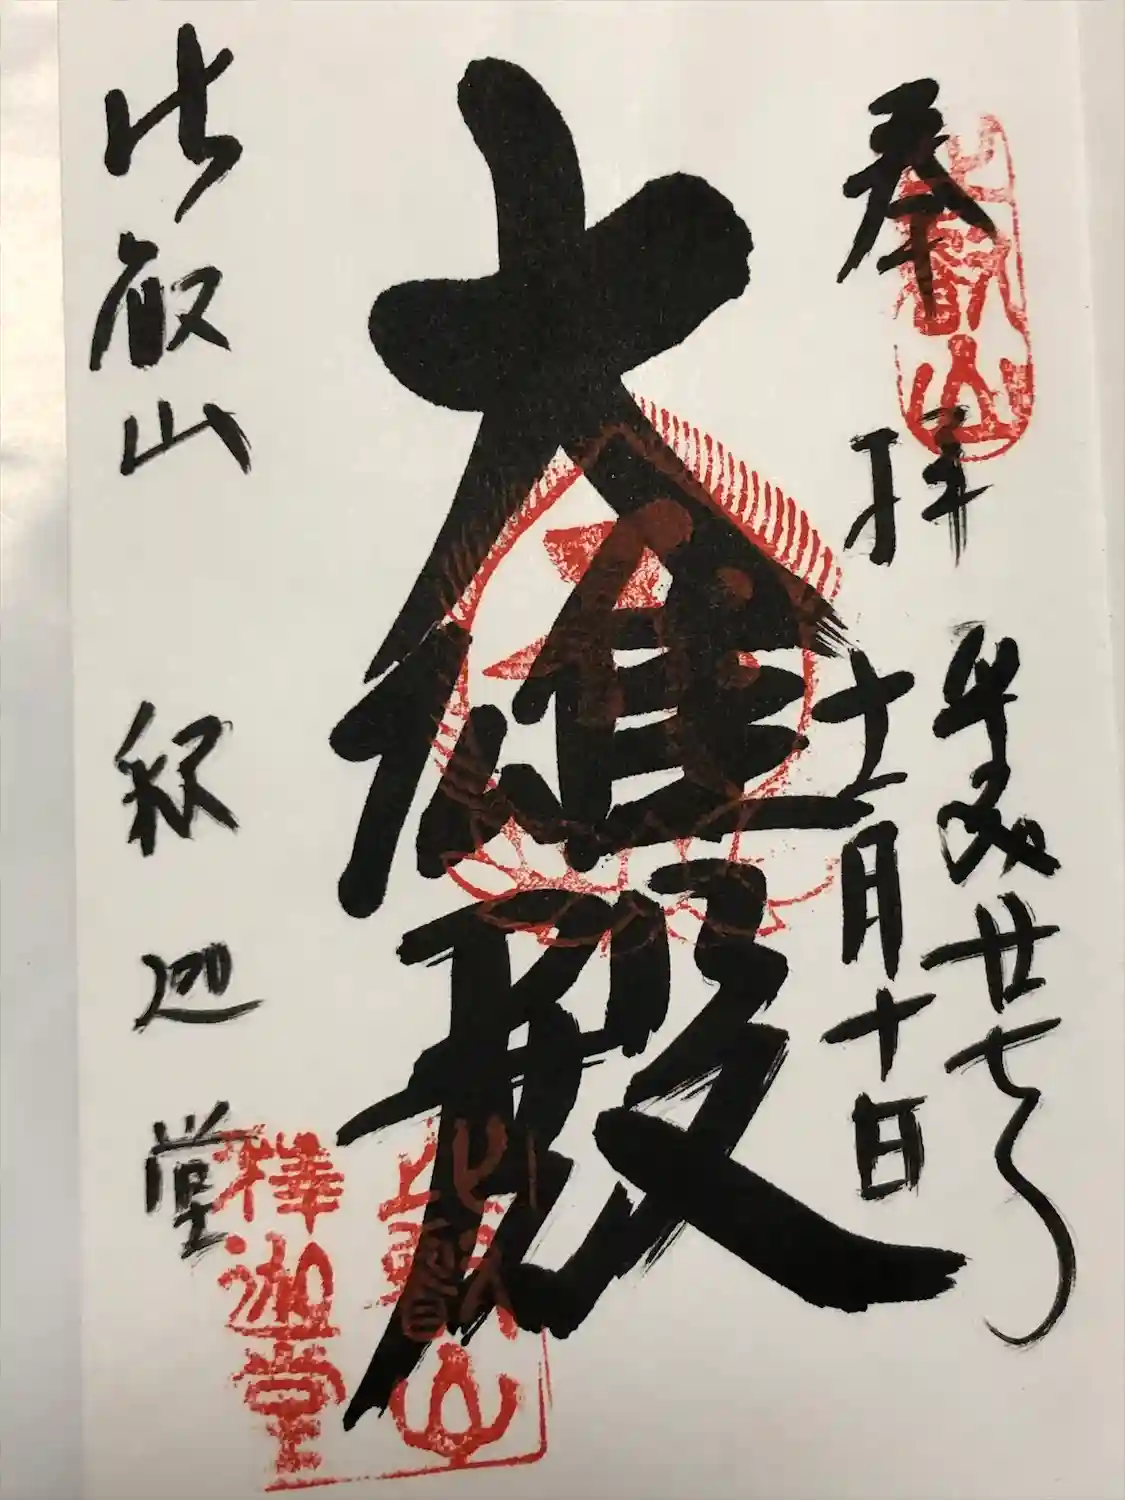 奉拝
平成廿七年
十二月十日
大雄殿
比叡山 釈迦堂
比叡山
比叡山
釋迦堂